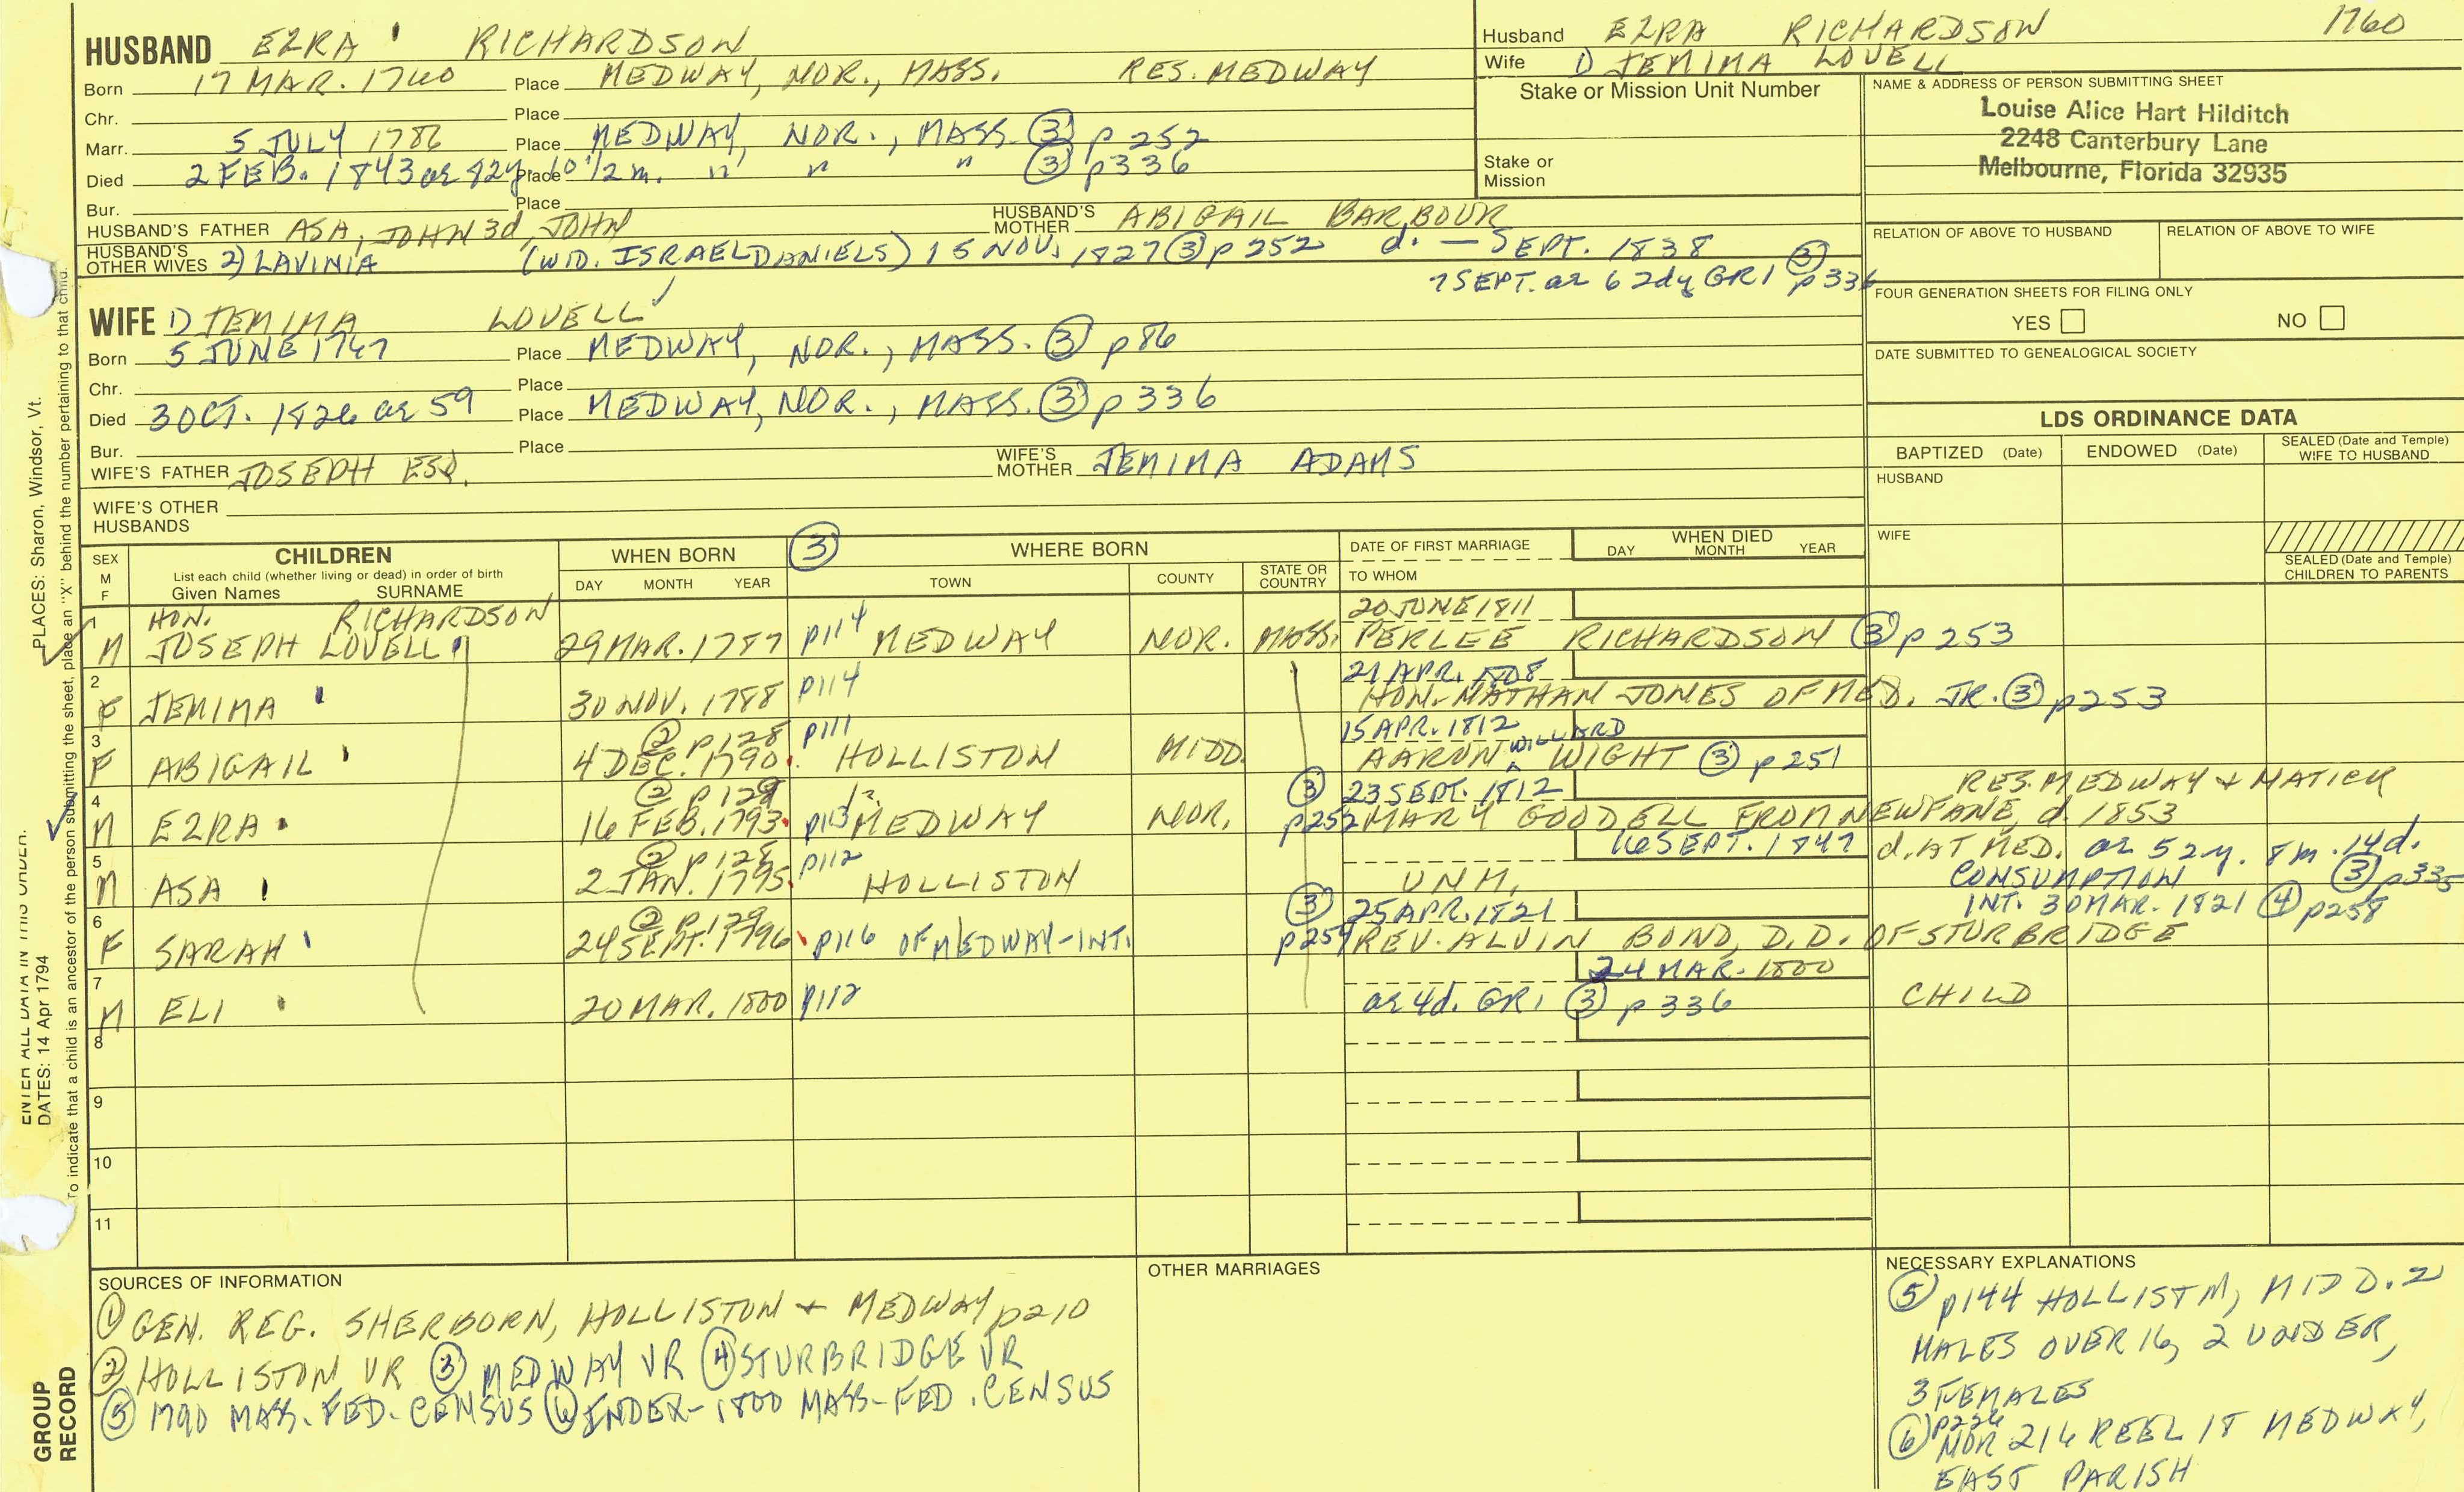 HUSBAND EZRA RICHARDSON
Born 17 MAR. 1760 Place MEDWAY, NOR., MASS. RES. MEDWAY
Chr. Place
Marr. 5 JULY 1786 Place MEDWAY, NOR., MASS. (3) p 252
Died 2 FEB. 1843 ae 82y 10 1/2 m. Place " " " (3) p336
Bur. Place
HUSBAND'S FATHER ASA, JOHN 3d, JOHN HUSBAND'S MOTHER ABIGAIL BARBOUR
HUSBAND'S OTHER WIVES 2) LAVINIA (WID. ISRAEL DANIELS) 15 NOV. 1827 (3) p 252 d. — SEPT. 1838
7 SEPT. ae 62dy GR1 (3) p 336
Husband EZRA RICHARDSON 1760
Wife 1) JEMIMA LOVELL
Stake or Mission Unit Number
Stake or Mission
NAME & ADDRESS OF PERSON SUBMITTING SHEET
Louise Alice Hart Hilditch
2248 Canterbury Lane
Melbourne, Florida 32935
RELATION OF ABOVE TO HUSBAND RELATION OF ABOVE TO WIFE
FOUR GENERATION SHEETS FOR FILING ONLY
YES NO
DATE SUBMITTED TO GENEALOGICAL SOCIETY
WIFE 1) JEMIMA LOVELL
Born 5 JUNE 1767 Place MEDWAY, NOR., MASS. (3) p86
Chr. Place
Died 3 OCT. 1826 ae 59 Place MEDWAY, NOR., MASS. (3) p 336
Bur. Place
WIFE'S FATHER JOSEPH ESQ. WIFE'S MOTHER JEMIMA ADAMS
WIFE'S OTHER HUSBANDS
LDS ORDINANCE DATA
BAPTIZED (Date) ENDOWED (Date) SEALED (Date and Temple) WIFE TO HUSBAND
HUSBAND
WIFE
SEALED (Date and Temple) CHILDREN TO PARENTS
SEX M F CHILDREN WHEN BORN (3) WHERE BORN DATE OF FIRST MARRIAGE WHEN DIED
List each child (whether living or dead) in order of birth
Given Names SURNAME DAY MONTH YEAR TOWN COUNTY STATE OR COUNTRY TO WHOM DAY MONTH YEAR
1 HON. RICHARDSON 20 JUNE 1811
M JOSEPH LOVELL 29 MAR. 1787 p114 MEDWAY NOR. MASS. PERLEE RICHARDSON (3) p 253
2 21 APR. 1808
F JEMIMA 30 NOV. 1788 p114 HON. NATHAN JONES OF MED. JR. (3) p253
3 (2) p128 p111 15 APR. 1812 WILLARD
F ABIGAIL 4 DEC. 1790 HOLLISTON MIDD. AARON ^ WIGHT (3) p 251
4 (2) p 129 (3) 23 SEPT. 1812 RES. MEDWAY + NATICK
M EZRA 16 FEB. 1793 p113 MEDWAY NOR. p252 MARY GOODELL FROM NEWFANE, d. 1853
5 (2) p128 p112 16 SEPT. 1847 d. AT MED. ae 52y. 8m. 14d.
M ASA 2 JAN. 1795 HOLLISTON UNM. CONSUMPTION (3) p335
6 (2) p.129 (3) 25 APR. 1821 INT. 30 MAR. 1821 (4) p258
F SARAH 24 SEPT. 1796 p116 OF MEDWAY-INT. p254 REV. ALVIN BOND, D.D. OF STURBRIDGE
7 24 MAR. 1800
M ELI 20 MAR. 1800 p112 ae 4d. GR1 (3) p 336 CHILD
8
9
10
11
SOURCES OF INFORMATION
(1) GEN. REG. SHERBORN, HOLLISTON + MEDWAY p210
(2) HOLLISTON VR (3) MEDWAY VR (4) STURBRIDGE VR
(5) 1790 MASS. FED. CENSUS (6) INDEX-1800 MASS-FED. CENSUS
OTHER MARRIAGES
NECESSARY EXPLANATIONS
(5) p144 HOLLISTN, MIDD. 2
MALES OVER 16, 2 UNDER,
3 FEMALES
(6) p226
NOR 216 REEL 18 MEDWAY,
EAST PARISH
ENTER ALL DATA IN THIS ORDER:
PLACES: Sharon, Windsor, Vt.
DATES: 14 Apr 1794
To indicate that a child is an ancestor of the person submitting the sheet, place an "X" behind the number pertaining to that child.
GROUP RECORD